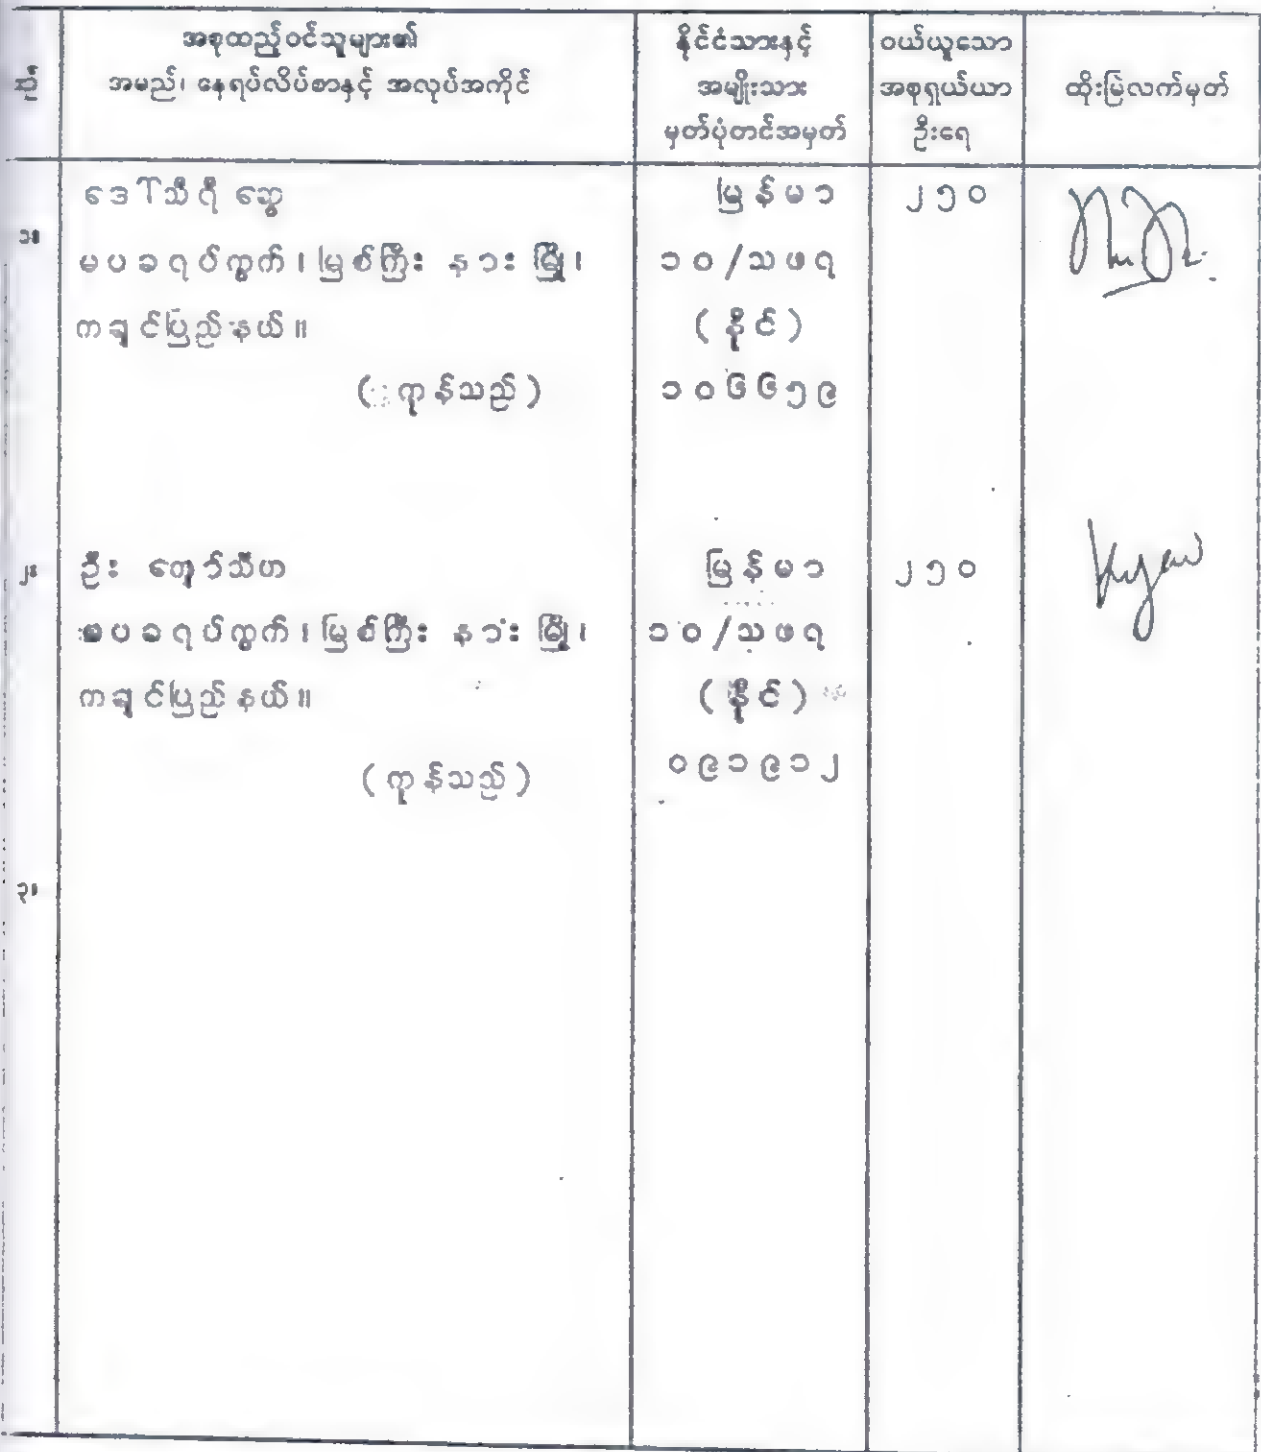 စဉ်
အစုထည့်ဝင်သူများ၏
အမည်၊ နေရပ်လိပ်စာနှင့် အလုပ်အကိုင်
နိုင်ငံသားနှင့်
အမျိုးသား
မှတ်ပုံတင်အမှတ်
ဝယ်ယူသော
အစုရှယ်ယာ
ဦးရေ
ထိုးမြဲလက်မှတ်
၁။
ဒေါ်သီရီ ဆွေ
မပခရပ်ကွက်၊ မြစ်ကြီး နား မြို့၊
ကချင်ပြည်နယ်။
(ကုန်သည်)
မြန်မာ
၁၀/သဖရ
(နိုင်)
၁၀၆၆၅၉
၂၅၀
၂။
ဦး ကျော်သီဟ
မပခရပ်ကွက်၊ မြစ်ကြီး နား မြို့၊
ကချင်ပြည်နယ်။
(ကုန်သည်)
မြန်မာ
၁၀/သဖရ
(နိုင်)
၀၉၁၉၁၂
၂၅၀
Kyaw
၃။